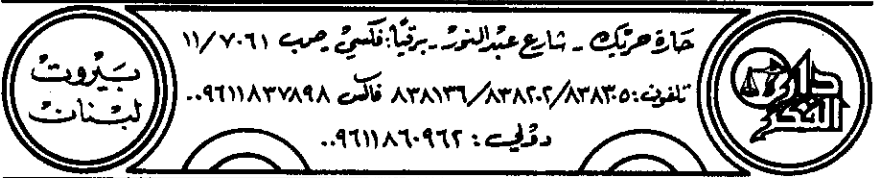 دار الفكر
حارة حريك - شارع عبدالنور - برقيًا: فكسي - صرب ١١/٧٠٦١
تلفون: ٨٣٨٣٠٥/٨٣٨٢٠٢/٨٣٨١٣٦ فاكس ٠٠٩٦١١٨٣٧٨٩٨
دولي: ٠٠٩٦١١٨٦٠٩٦٢
بيروت
لبنان